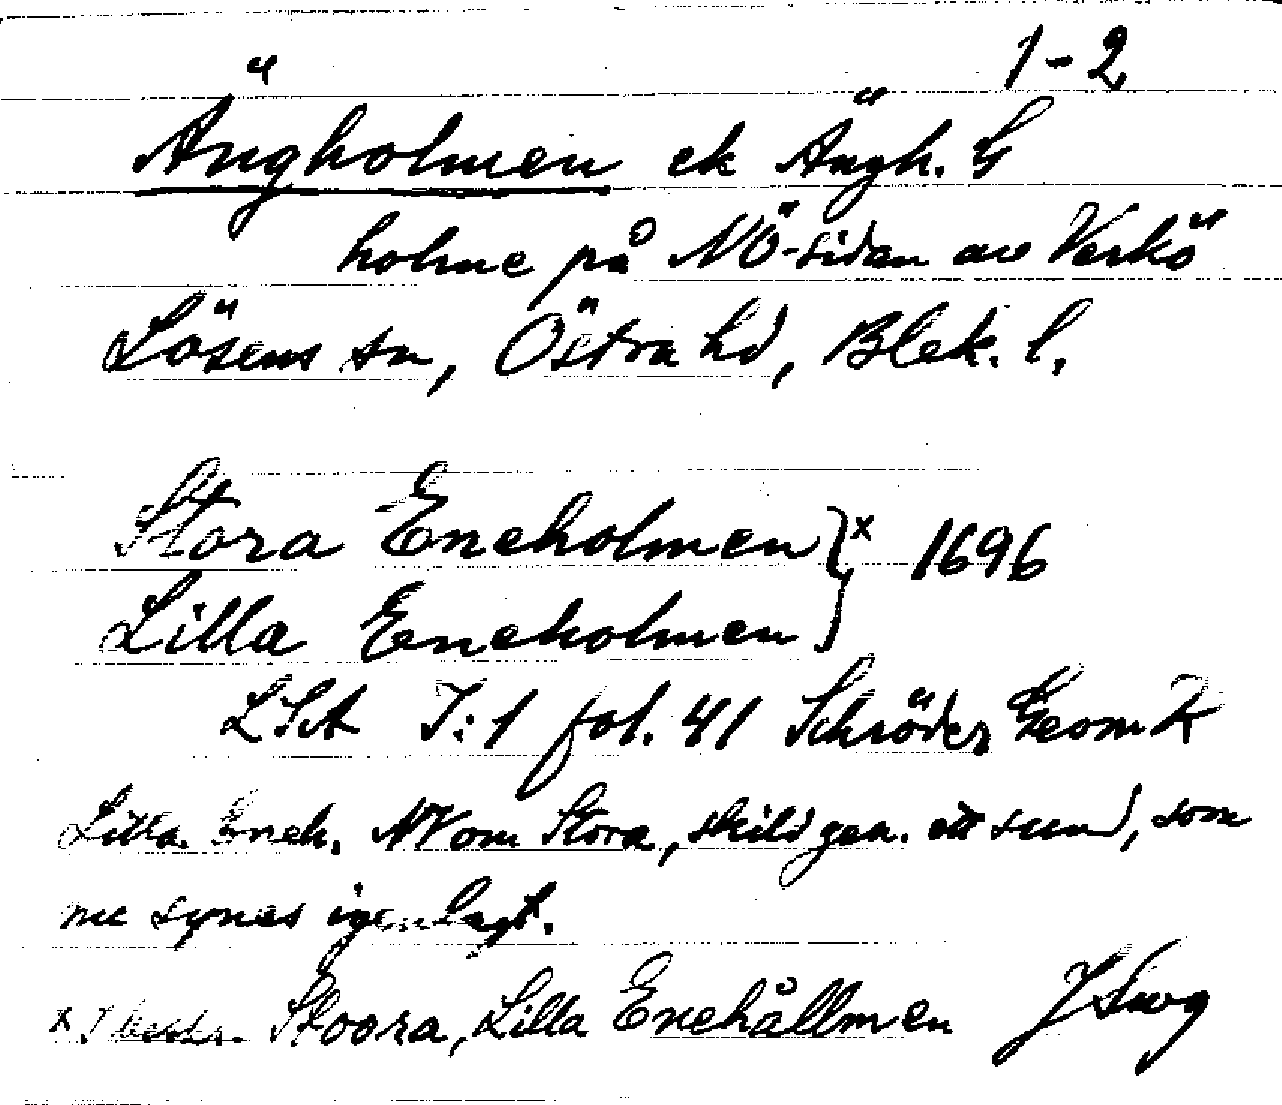 1-2
Ängholmen ek Ängh. G
holme på NÖ-sidan av Verkö
Lösens sn, Östra hd, Blek. l.
Stora Eneholmen }x 1696
Lilla Eneholmen
LSA I:1 fol. 41 Schröder Geom K
Lilla Eneh. NV om Stora, skild gen. ett sund, som
nu synes igenlagt.
x I beskr. Stoora, Lilla Enehållmen